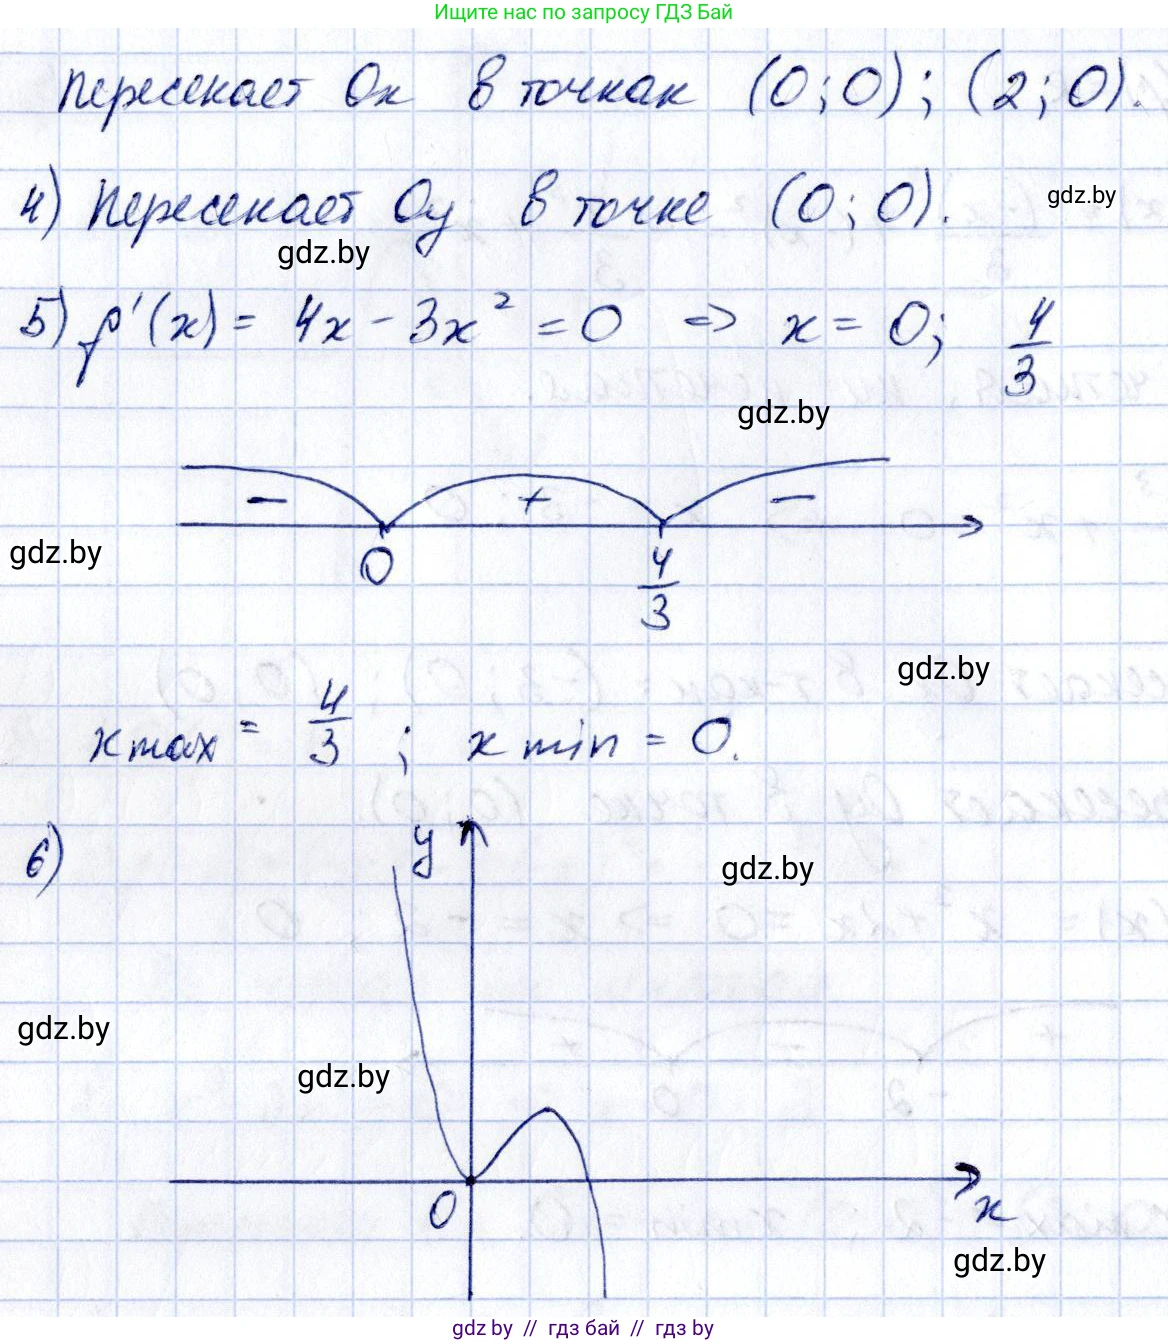 Ищите нас по запросу ГДЗ Бай
пересекает Ox в точках (0;0); (2;0).
4) Пересекает Oy в точке (0;0).
gdz.by
gdz.by
5) f'(x) = 4x - 3x² = 0 => x = 0; 4/3
gdz.by
− + −
gdz.by
0 4/3
gdz.by
xmax = 4/3; xmin = 0.
6) y
gdz.by
gdz.by
gdz.by
0 x
gdz.by
gdz by // гдз бай // гдз by